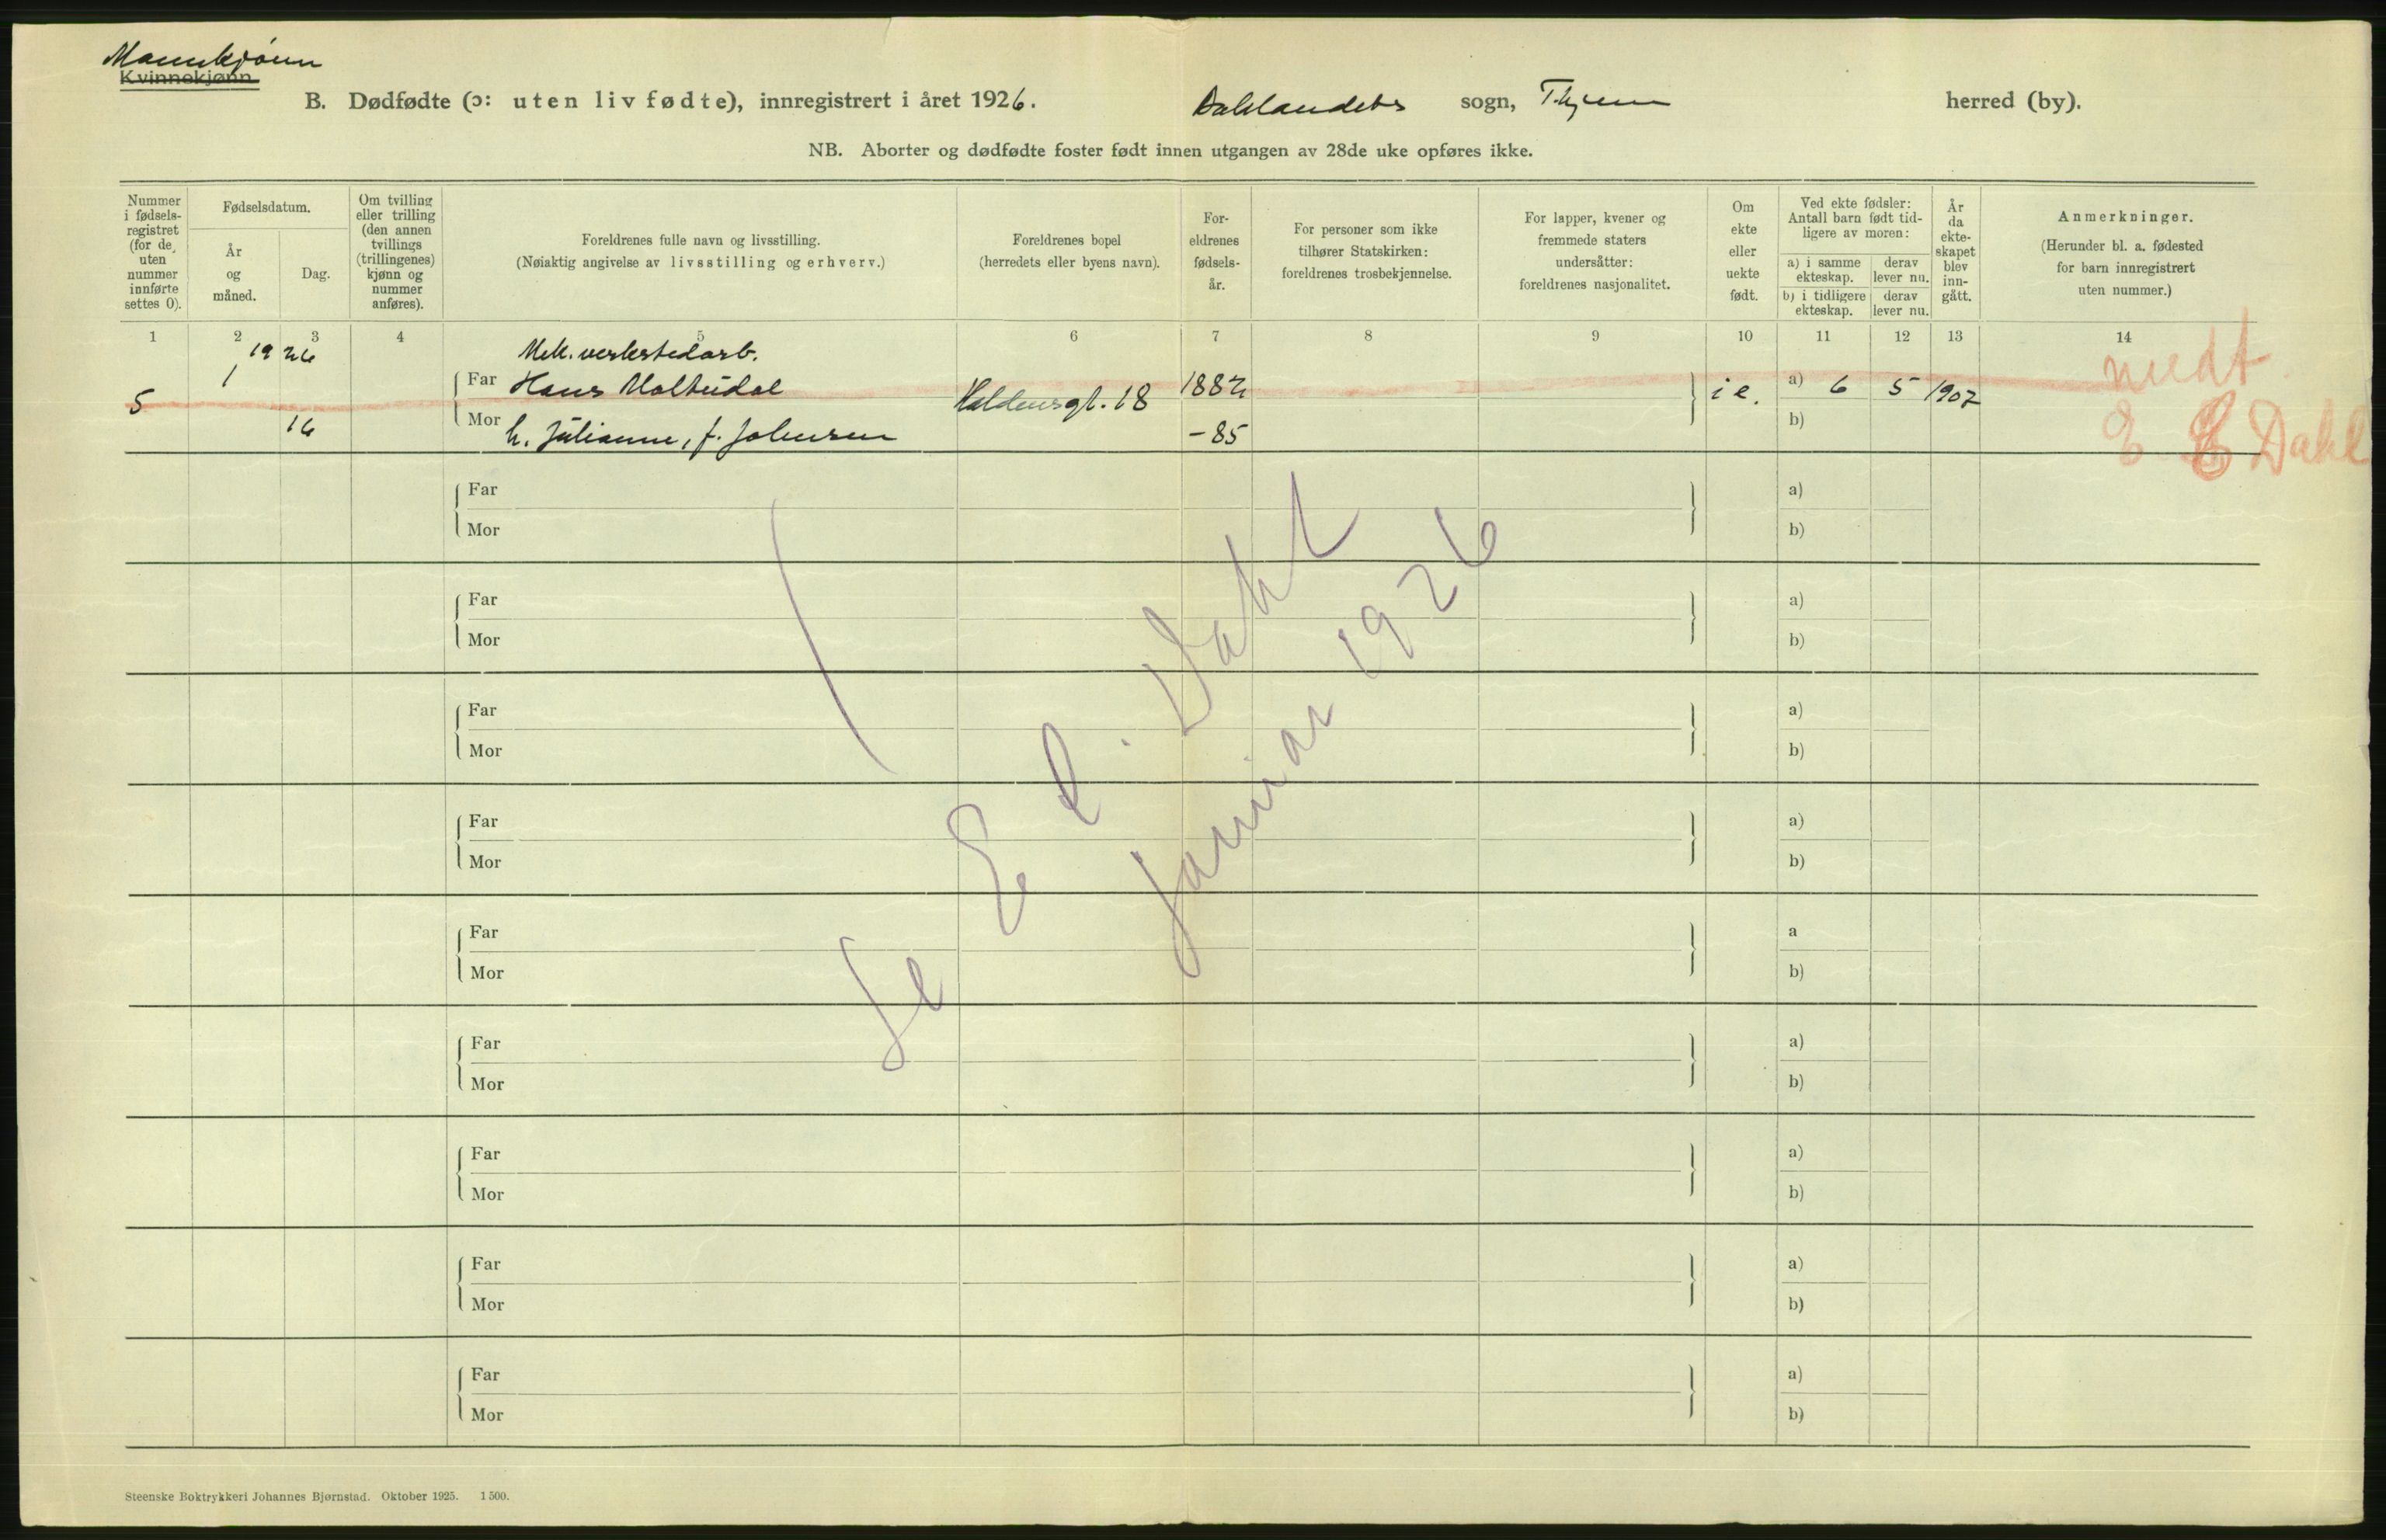 Mannkjønn
Kvinnekjønn
B. Dødfødte (ɔ: uten liv fødte), innregistrert i året 1926. sogn, Thjem herred (by).
NB. Aborter og dødfødte foster født innen utgangen av 28de uke opføres ikke.
Nummer i fødsels-registret (for de uten nummer innførte settes 0).
Fødselsdatum.
År og måned.
Dag.
Om tvilling eller trilling (den annen tvillings (trillingenes) kjønn og nummer anføres).
Foreldrenes fulle navn og livsstilling.
(Nøiaktig angivelse av livsstilling og erhverv.)
Foreldrenes bopel
(herredets eller byens navn).
For-eldrenes fødsels-år.
For personer som ikke tilhører Statskirken: foreldrenes trosbekjennelse.
For lapper, kvener og fremmede staters undersåtter: foreldrenes nasjonalitet.
Om ekte eller uekte født.
Ved ekte fødsler: Antall barn født tid-ligere av moren:
a) i samme ekteskap.
derav lever nu.
b) i tidligere ekteskap.
derav lever nu.
År da ekte-skapet blev inn-gått.
Anmerkninger.
(Herunder bl. a. fødested for barn innregistrert uten nummer.)
1 2 3 4 5 6 7 8 9 10 11 12 13 14
1926 Mek. verkstedarb.
5 1 Far Hans Moltudal Haldensgt. 18 1882 i e. a) 6 5 1907 medt
16 Mor h. Julianne, f. Johnsen -85 b) E E Dahl
Far a)
Mor b)
Far a)
Mor b)
Far a)
Mor b)
Far a)
Mor b)
Far a
Mor b)
Far a)
Mor b)
Far a)
Mor b)
Far a)
Mor b)
Far a)
Mor b)
Se E E. Dahl
Januar 1926
Steenske Boktrykkeri Johannes Bjørnstad. Oktober 1925. 1500.